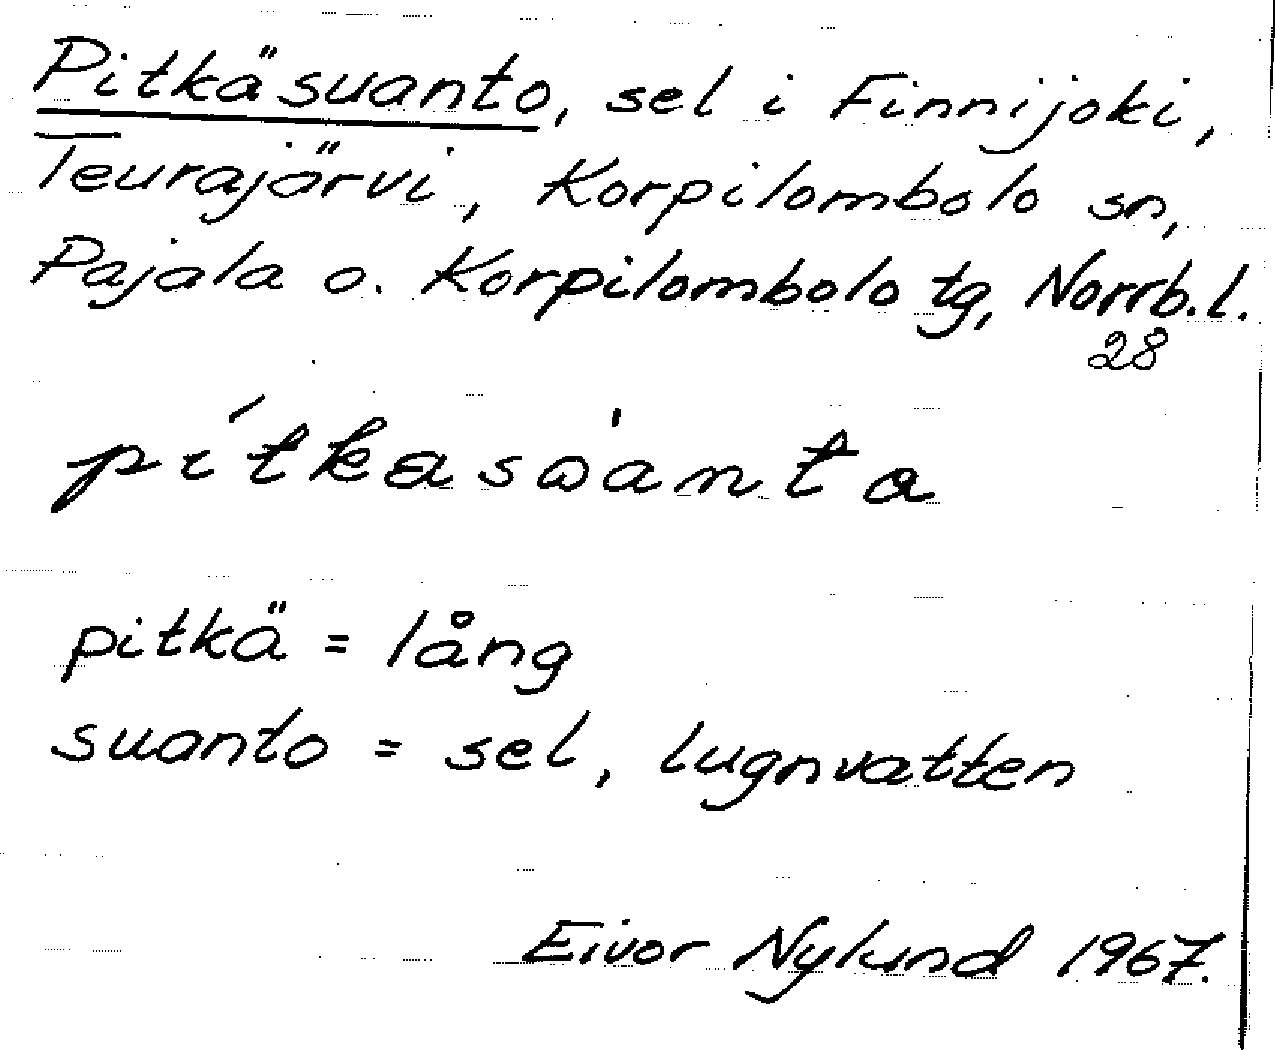 Pitkäsuanto, sel i Finnijoki,
Teurajärvi, Korpilombolo sn,
Pajala o. Korpilombolo tg, Norrb.l.
28
pí̀tkasẁanta
pitkä = lång
suanto = sel, lugnvatten
Eivor Nylund 1967.